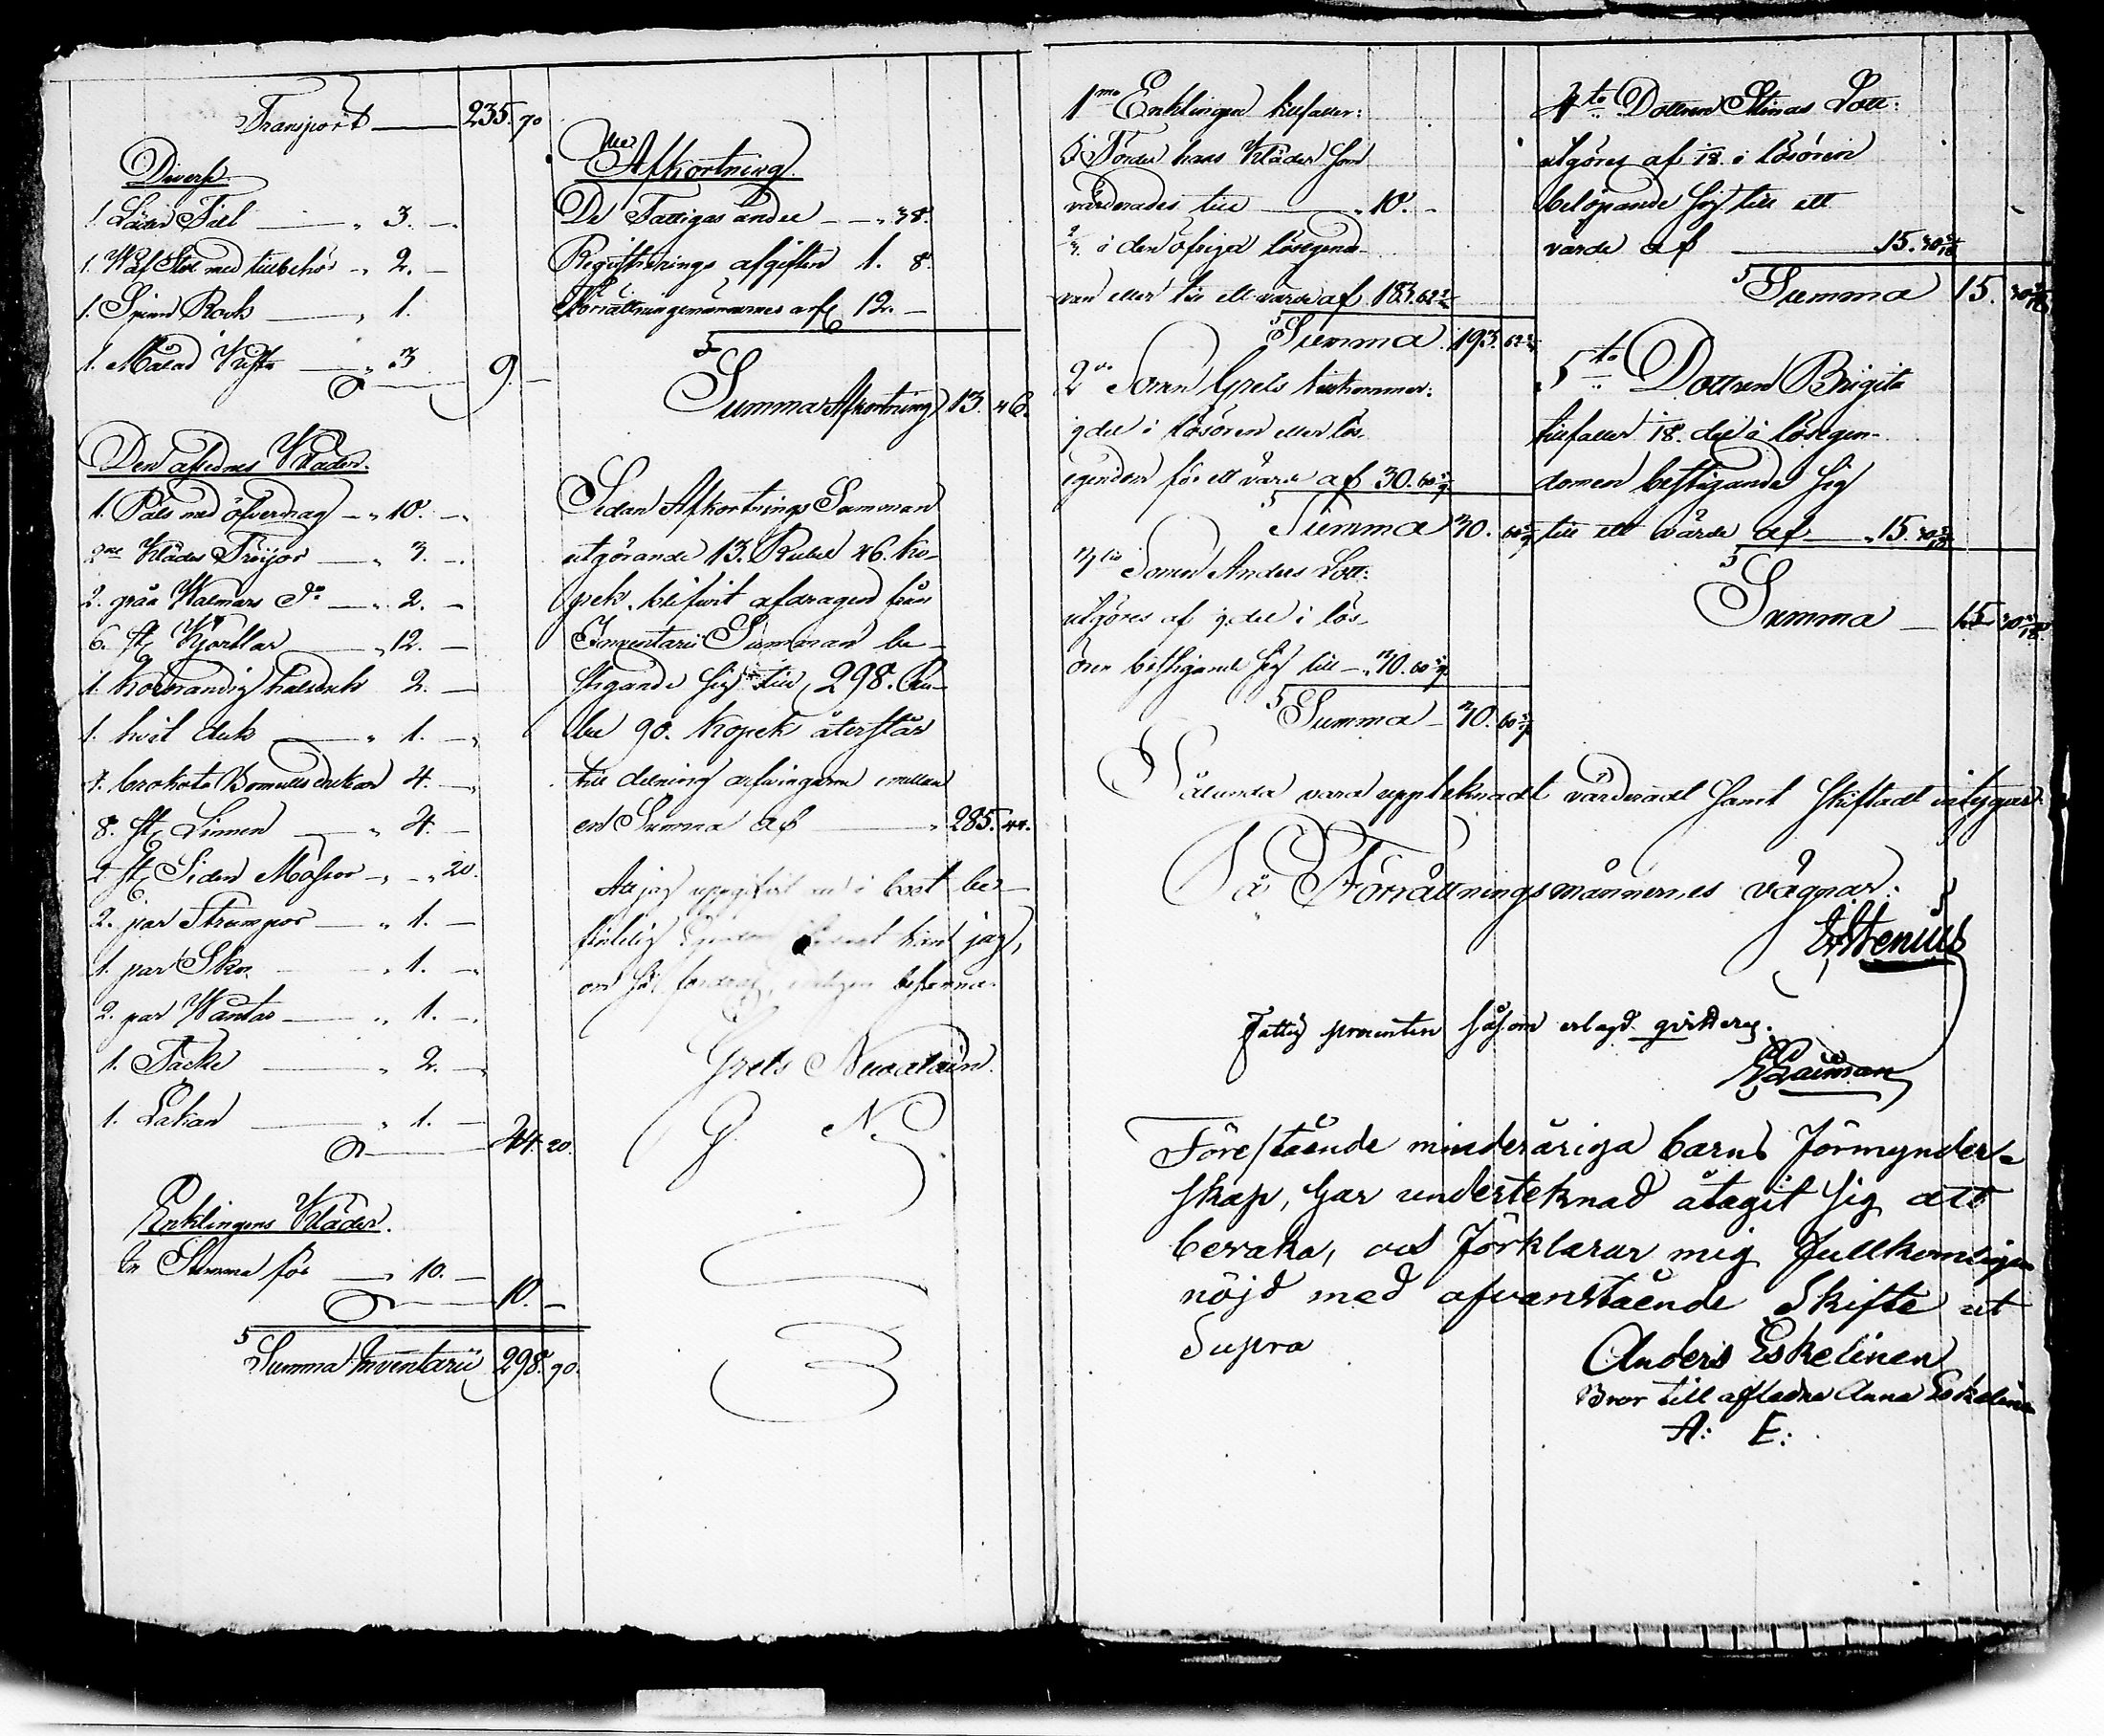 Transport — 235. 70
Diverse
1. Läder Fäll — " 3. —
1. Wäf Stol med tillbehör — " 2. —
1. Spinn Rock — " 1.
1. Målad Kista — " 3
9. —
Den aflednes Kläder.
1. Päls med öfverdrag — " 10. —
2ne Klädes Tröijor — " 3. —
2. gråa Walmars Do — " 2. —
6. st. Kjortlar — " 12. —
1. halsduk 2. —
1. hvit duk — " 1. —
4. brokota Bomulls dukar 4. —
8. st. Linnen — " 4. —
2 st. Siden Mössor — " — " 20.
2. par Strumpor — " 1. —
1. par Skor — " 1. —
2. par Wantar — " 1. —
1. Täcke — " 2. —
1. Lakan — " 1. —
44. 20.
Enklingens Kläder.
En Summa för — " 10. —
10. —
Summa Inventarii 298. 90.
Afkortning.
De Fattigas andel — " 38.
Registrerings afgiften 1. 8.
Förrättningsmännernes arf. 12. —
Summa Afkortning 13. 46.
Sedan Afkortnings Summan
utgörande 13. Rubel 46. Ko-
pek. blifvit afdragen från
Inventarii Summan be-
stigande sig till, 298. Ru-
bel 90. Kopek återstår
till delning arfvingarne emellan
en Summa af — " 285. 44.
Att jag uppgifvit all i boet be-
fintelig Egendom kan jag,
om så fordras, edeligen bekänna.
Grels Nuutain.
G. N.
1mo Enklingen tillfaller:
värderades till — " 10. —
2/3 i den öfriga lösegendo-
men eller till ett värde af 183. 62 2/3
Summa 193. 62 2/3
2do Sonen Grels tillkommer:
1/9 del i lösören eller lös
egendom för ett värde af 30. 60 4/9
Summa 30. 60 4/9
3tio Sonen Anders Lott:
utgöres af 1/9 del i lös-
ören bestigande sig till — " 30. 60 4/9
Summa — 30. 60 4/9
4to Dottren Stinas Lott:
utgöres af 1/18 i lösören
belöpande sig till ett
värde af — 15. 30 2/18
Summa 15. 30 2/18
5to Dottren Brigita
tillfaller 1/18 del i lösegen-
domen bestigande sig
till ett värde af — " 15. 30 2/18
Summa — 15 30 2/18
Sålunda vara uppteknadt värderadt samt skiftadt intygar
På Förrättningsmännernes vägnar:
Stenius
Fattig procenten såsom erlagd qvitteras.
Förestående minderåriga barns förmynder-
skap, har underteknad åtagit sig att
bevaka, och förklarar mig fullkomligen
nöjd med ofvanstående Skifte ut
Supra
Anders Eskelinen
Bror till afledna Anna Eskelinen
A: E: